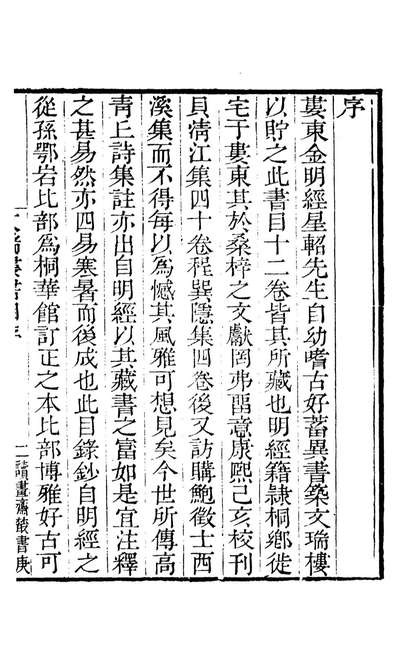 序
婁東金明經星軺先生自幼嗜古好蓄異書築文瑞樓
以貯之此書目十二卷皆其所藏也明經籍隸桐鄉徙
宅于婁東其於桑梓之文獻罔弗畱意康熙己亥校刊
貝淸江集四十卷程巽隱集四卷後又訪購鮑徵士西
溪集而不得每以爲憾其風雅可想見矣今世所傳高
靑丘詩集註亦出自明經以其藏書之富如是宜注釋
之甚易然亦四易寒暑而後成也此目錄鈔自明經之
從孫鄂岩比部爲桐華館訂正之本比部博雅好古可
文瑞樓書目序
一讀畫齋叢書庚